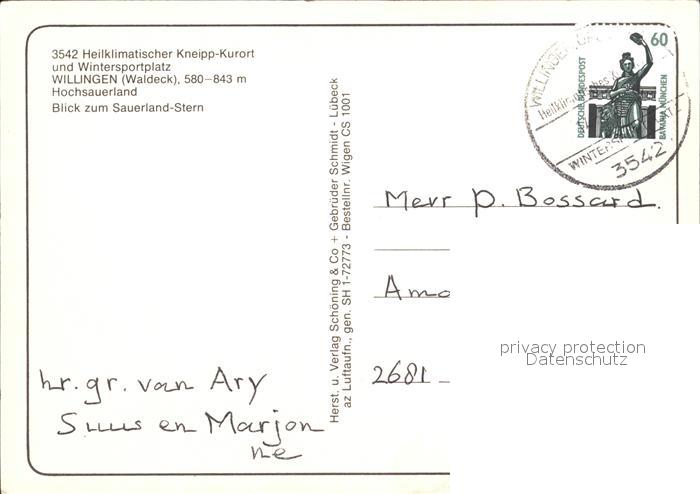 3542 Heilklimatischer Kneipp-Kurort
und Wintersportplatz
WILLINGEN (Waldeck), 580–843 m
Hochsauerland
Blick zum Sauerland-Stern
Herst. u. Verlag Schöning & Co + Gebrüder Schmidt - Lübeck
az Luftaufn., gen. SH 1-72773 - Bestellnr. Wigen CS 1001
60
DEUTSCHE BUNDESPOST
BAVARIA MÜNCHEN
3542
Merr P. Bossard.
Amo
2681
privacy protection
Datenschutz
hr. gr. van Ary
en Marjon
ne